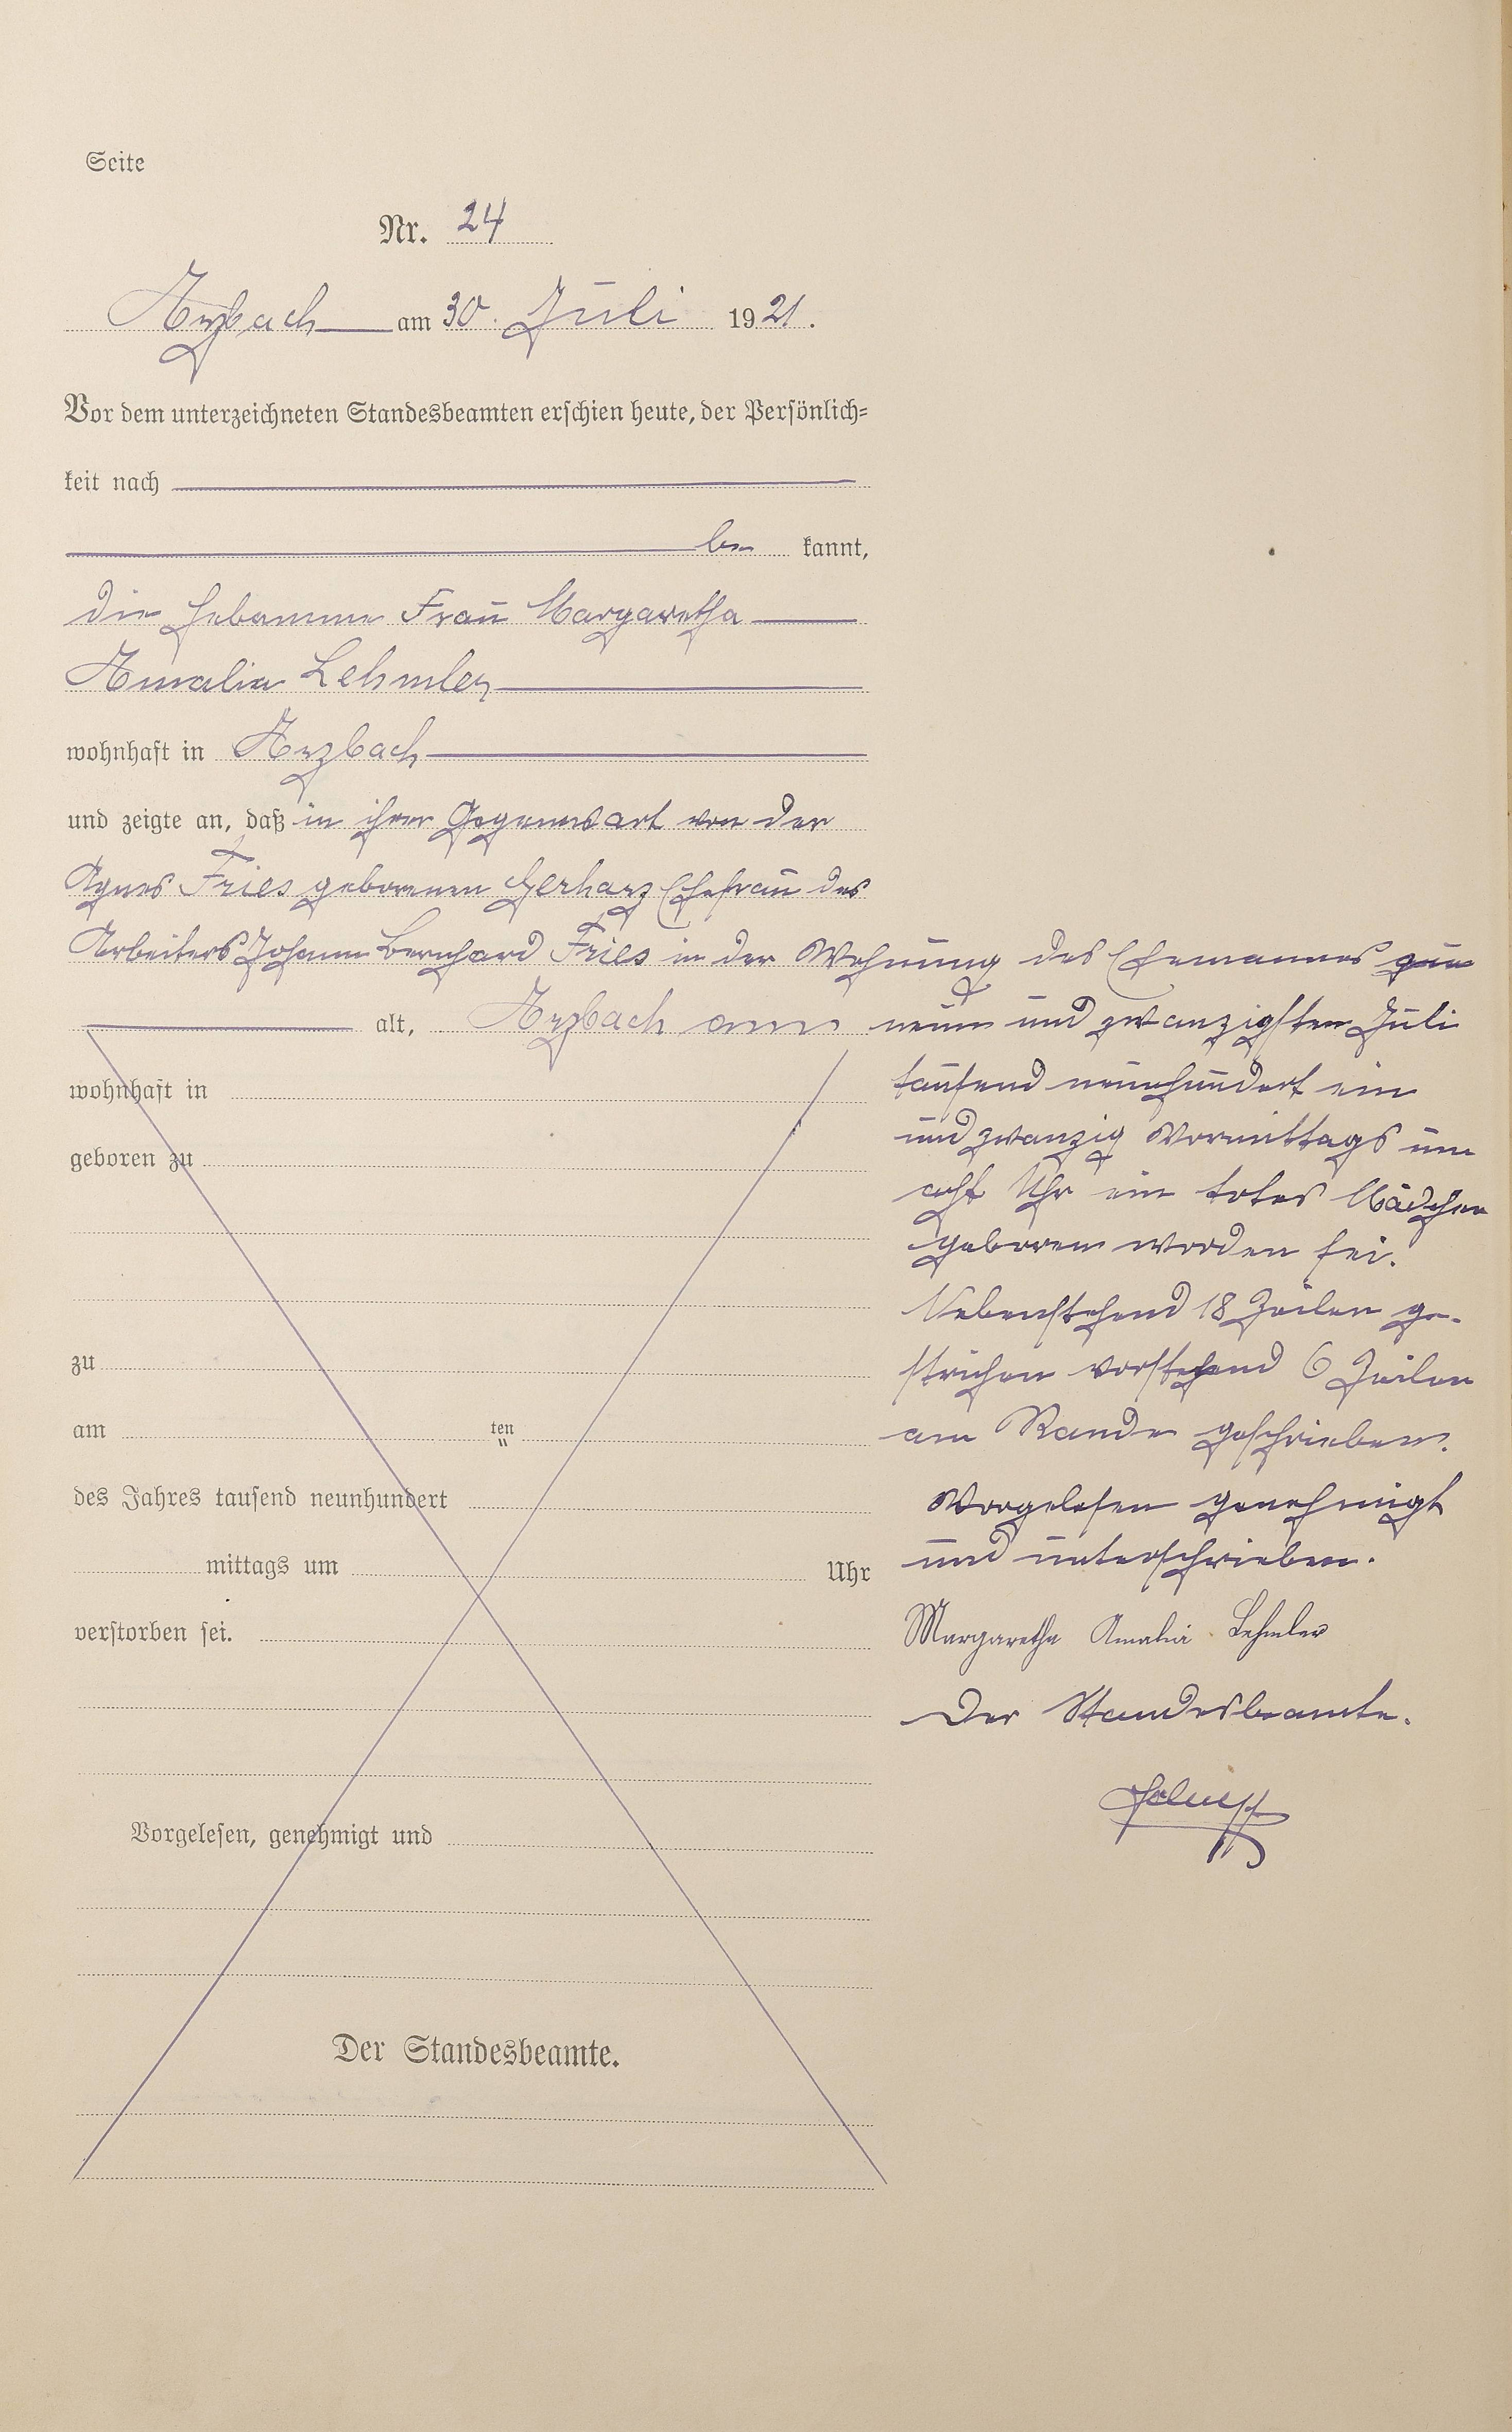 Seite
Nr. 24
Arzbach am 30. Juli 1921.
Vor dem unterzeichneten Standesbeamten erschien heute, der Persönlich=
keit nach
be kannt,
die Hebamme Frau Margaretha
Amalia Lehmler
wohnhaft in Arzbach
und zeigte an, daß in ihrer Gegenwart von der
Agnes Fries geborenen Gerharz Ehefrau des
Arbeiters Johann Bernhard Fries in der Wohnung des Ehemannes
alt, Arzbach am neun und zwanzigsten Juli
wohnhaft in
geboren zu
zu
am ten
des Jahres tausend neunhundert
mittags um Uhr
verstorben sei.
Vorgelesen, genehmigt und
Der Standesbeamte.
tausend neunhundert ein
und zwanzig Vormittags um
acht Uhr ein totes Mädchen
geboren worden sei.
Nebenstehend 18 Zeilen ge-
strichen vorstehend 6 Zeilen
am Rande geschrieben.
Vorgelesen genehmigt
und unterschrieben.
Margaretha Amalia Lehmler
Der Standesbeamte.